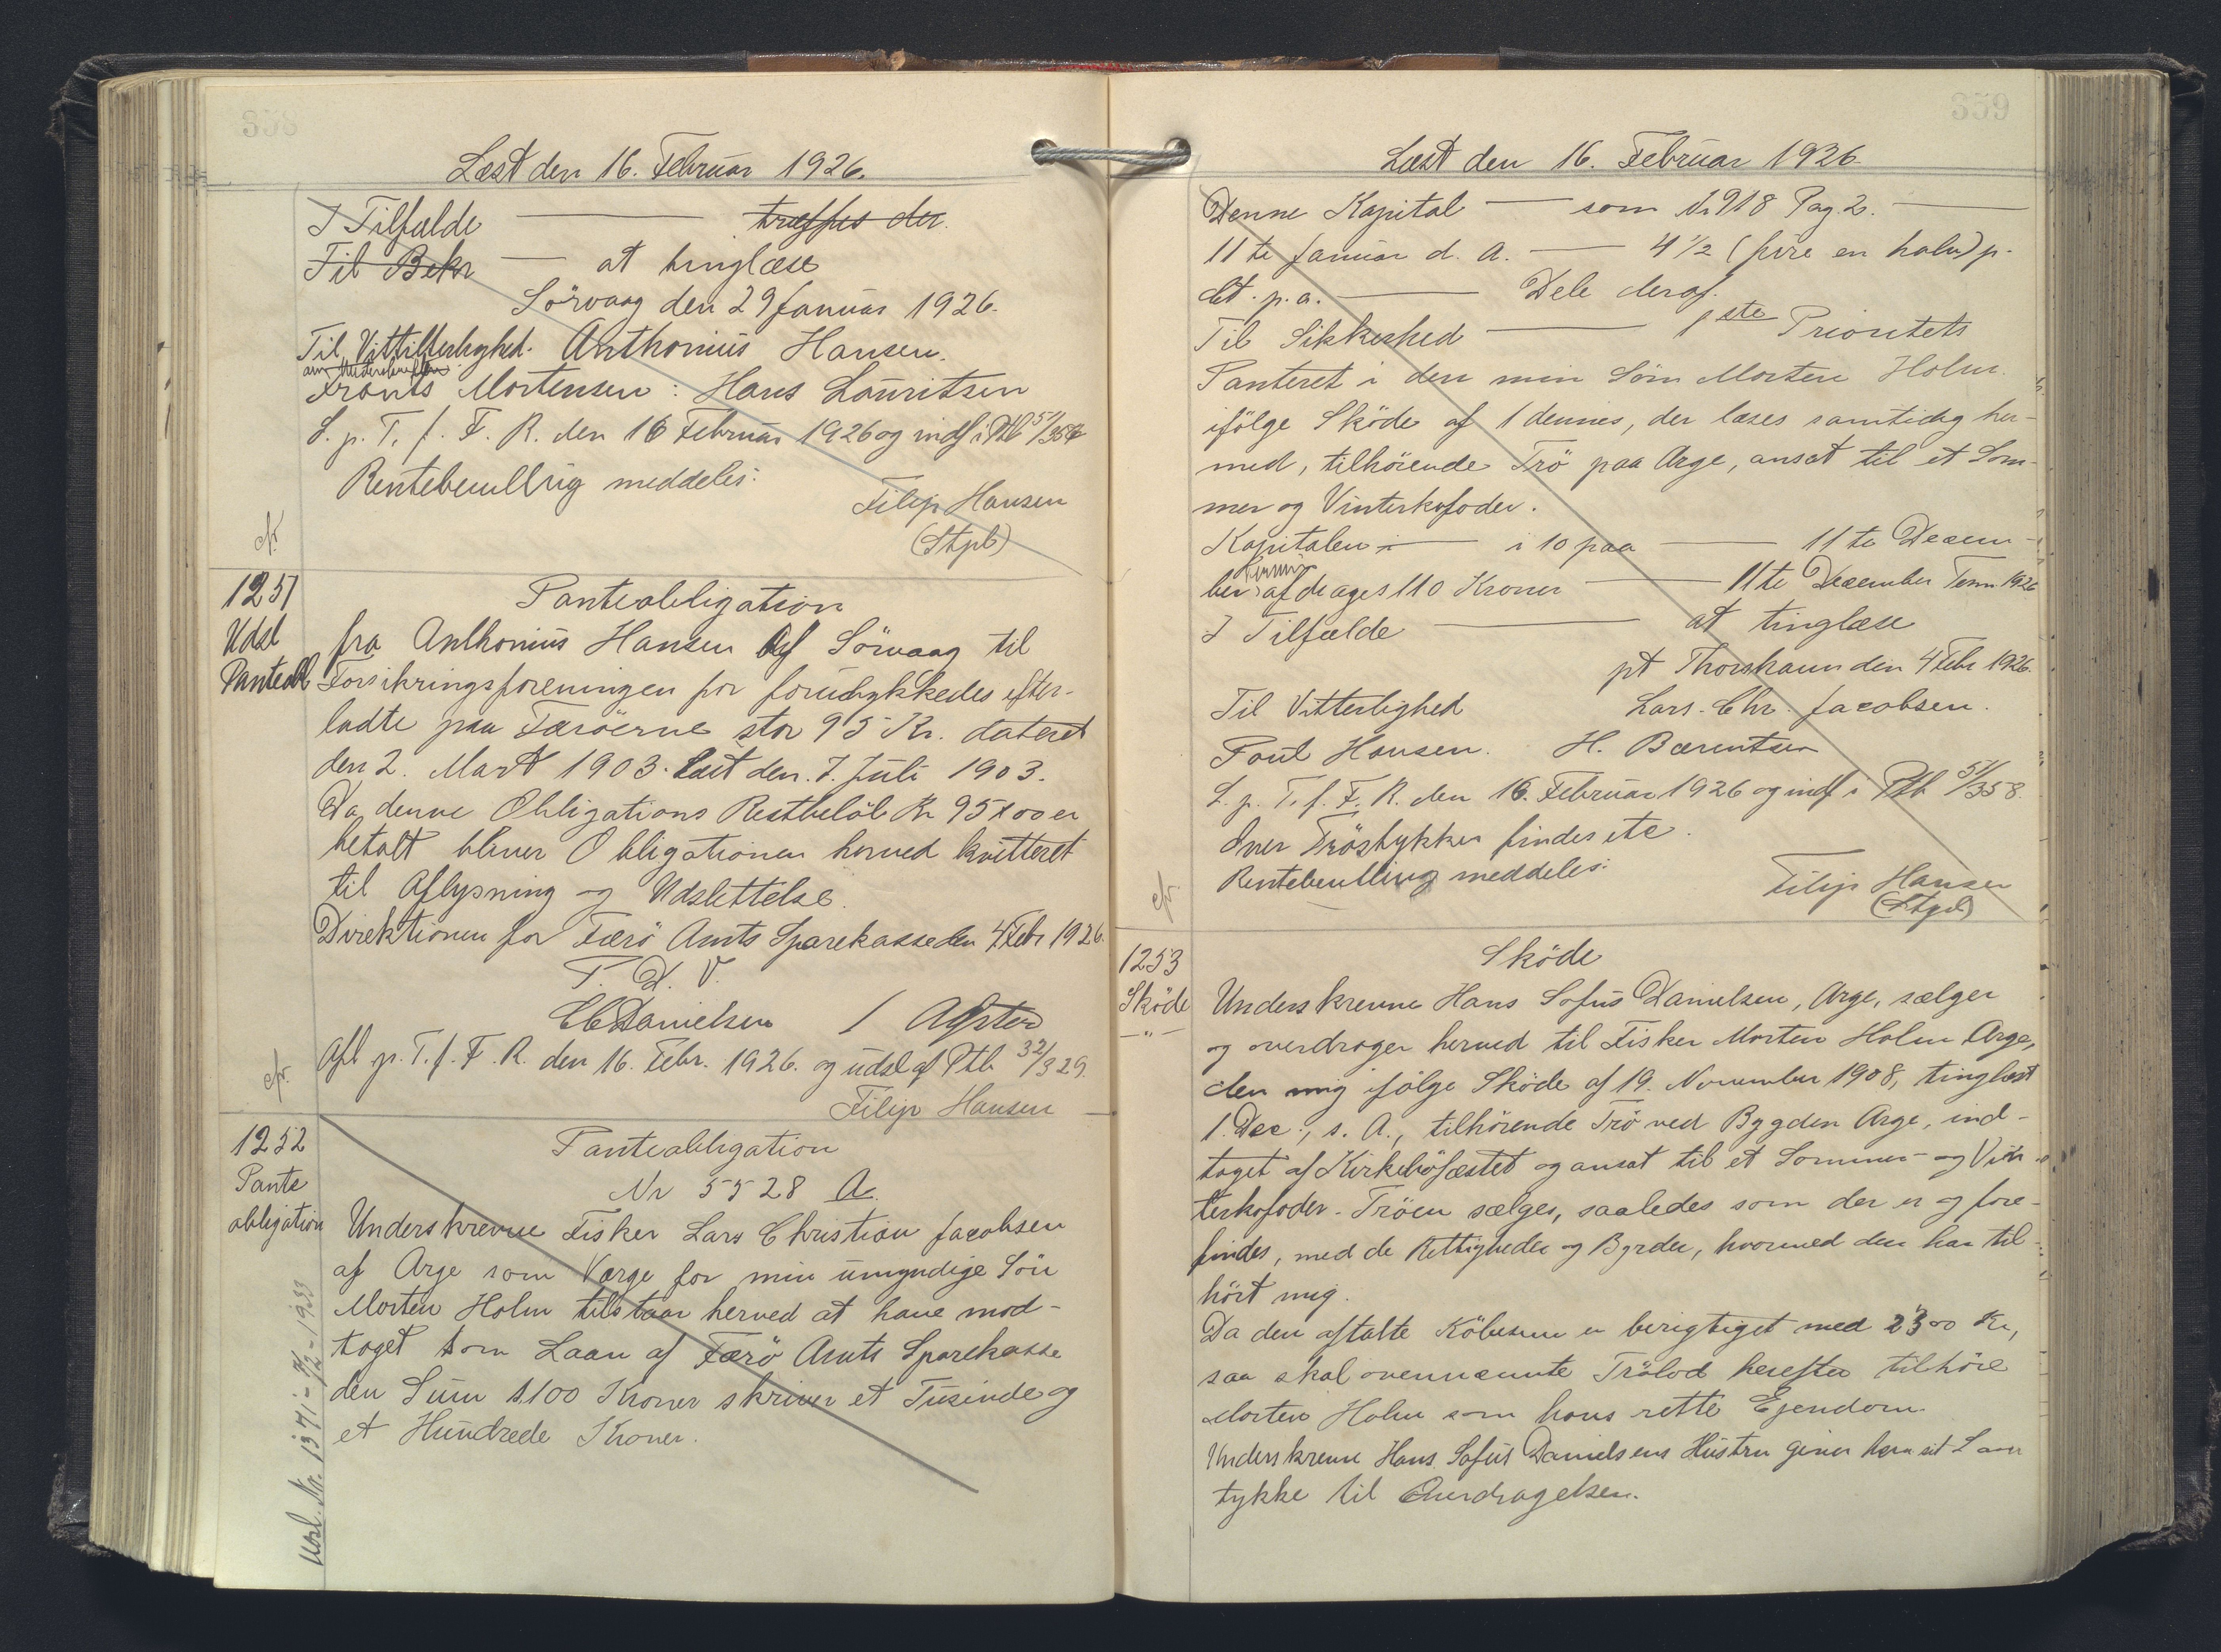 358
Læst den 16. Februar 1926.
I Tilfælde — træffes der
Til Bekr — at tinglæse
Sörvaag den 29 Januar 1926.
Til Vittitterlighed. Anthonius Hansen.
om Underskriften
Frants Mortensen : Hans Lauritsen
L. p. T. f. F. R. den 16 Februar 1926 og indf i Ptb 51/356
Rentebevilling meddeles:
Filip Hansen
(Stpl)
cfr.
1251
Udsl
Panteobl
Panteobligation
fra Anthonius Hansen af Sörvaag til
Forsikringsforeningen for forulykkedes efter-
ladte paa Færöerne stor 95 Kr. dateret
den 2. Mart 1903. Læst den 7. Juli 1903.
Da denne Obligations Restbelöb Kr 95x00 er
betalt bliver Obligationen herved kvitteret
til Aflysning og Udslettelse.
Direktionen for Færö Amts Sparekasse den 4. Febr 1926.
P. D. V.
C C Danielsen / 
Afl p. T. f. F. R. den 16. Febr. 1926. og udsl af Ptb 32/329.
Filip Hansen
cfr.
1252
Pante
obligation
Panteobligation
Nr 5528 A.
Underskrevne Fisker Lars Christian Jacobsen
af Arge som Værge for min umyndige Sön
Morten Holm tilstaar herved at have mod-
taget som Laan af Færö Amts Sparekasse
den Sum 1100 Kroner skriver et Tusinde og
et Hundrede Kroner.
Udsl. Nr. 1371 - 1933
359
Læst den 16. Februar 1926.
Denne Kapital — som Nr 918 Pag. 2. —
11te Januar d. A. — 4 1/2 (fire en halv) p-
ct. p. a. — Dele deraf.
Til Sikkerhed — 1ste Prioritets
Panteret i den min Sön Morten Holm
ifölge Sköde af 1 dennes, der læses samtidig her-
med, tilhörende Trö paa Arge, ansat til et Som-
mer og Vinterkofoder.
Kapitalen i — i 10 paa — 11te Decem-
Termin
ber afdrages 110 Kroner — 11te December Term 1926
I Tilfælde — at tinglæse
pt Thorshavn den 4 Febr 1926.
Til Vitterlighed Lars. Chr. Jacobsen.
Poul Hansen. H. Bærentsen
L. p. T. f. F. R. den 16. Februar 1926 og indf i Ptb 51/358.
Over Tröstykker findes etc.
Rentebevilling meddeles:
Filip Hansen
(Stpl)
cfr.
1253
Sköde
— " —
Sköde
Underskrevne Hans Sofus Danielsen, Arge, sælger
og overdrager herved til Fisker Morten Holm Arge,
den mig ifölge Sköde af 19. November 1908, tinglæst
1. Dec., s. A., tilhörende Trö ved Bygden Arge, ind-
taget af Kirkeböfæstet og ansat til et Sommer- og Vin-
terkofoder. Tröen sælges, saaledes som der er og fore-
findes, med de Rettigheder og Byrder, hvormed den har til-
hört mig.
Da den aftalte Köbesum er berigtiget med 2300 Kr,
saa skal ovennævnte Trölod herefter tilhöre
Morten Holm som hans rette Ejendom
Underskrevne Hans Sofus Danielsens Hustru giver herm sit Sam
tykke til Overdragelsen.